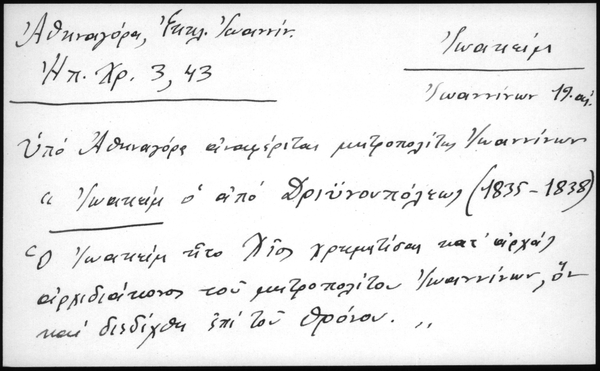 Ἀθηναγόρα, Ἐκκλ. Ἰωαννίν.
Ἠπ. Χρ. 3, 43
Ἰωακείμ
Ἰωαννίνων 19. αἰ.
Ὑπό Ἀθηναγόρα ἀναφέρεται μητροπολίτης Ἰωαννίνων
" Ἰωακείμ ὁ ἀπό Δρυϊνουπόλεως (1835-1838)
Ὁ Ἰωακείμ ἦτο Χῖος χρηματίσας κατ' ἀρχάς
ἀρχιδιάκονος τοῦ μητροπολίτου Ἰωαννίνων, ὅν
καί διεδέχθη ἐπί τοῦ θρόνου. "